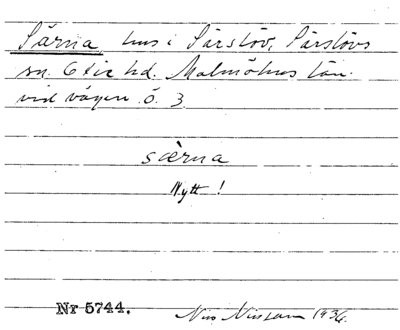 Särna hus i Särslöv, Särslövs
sn. Oxie hd. Malmöhus län.
vid vägen ö. 3
særna
Nytt!
Nr 5744. Nils Nilsson 1936.